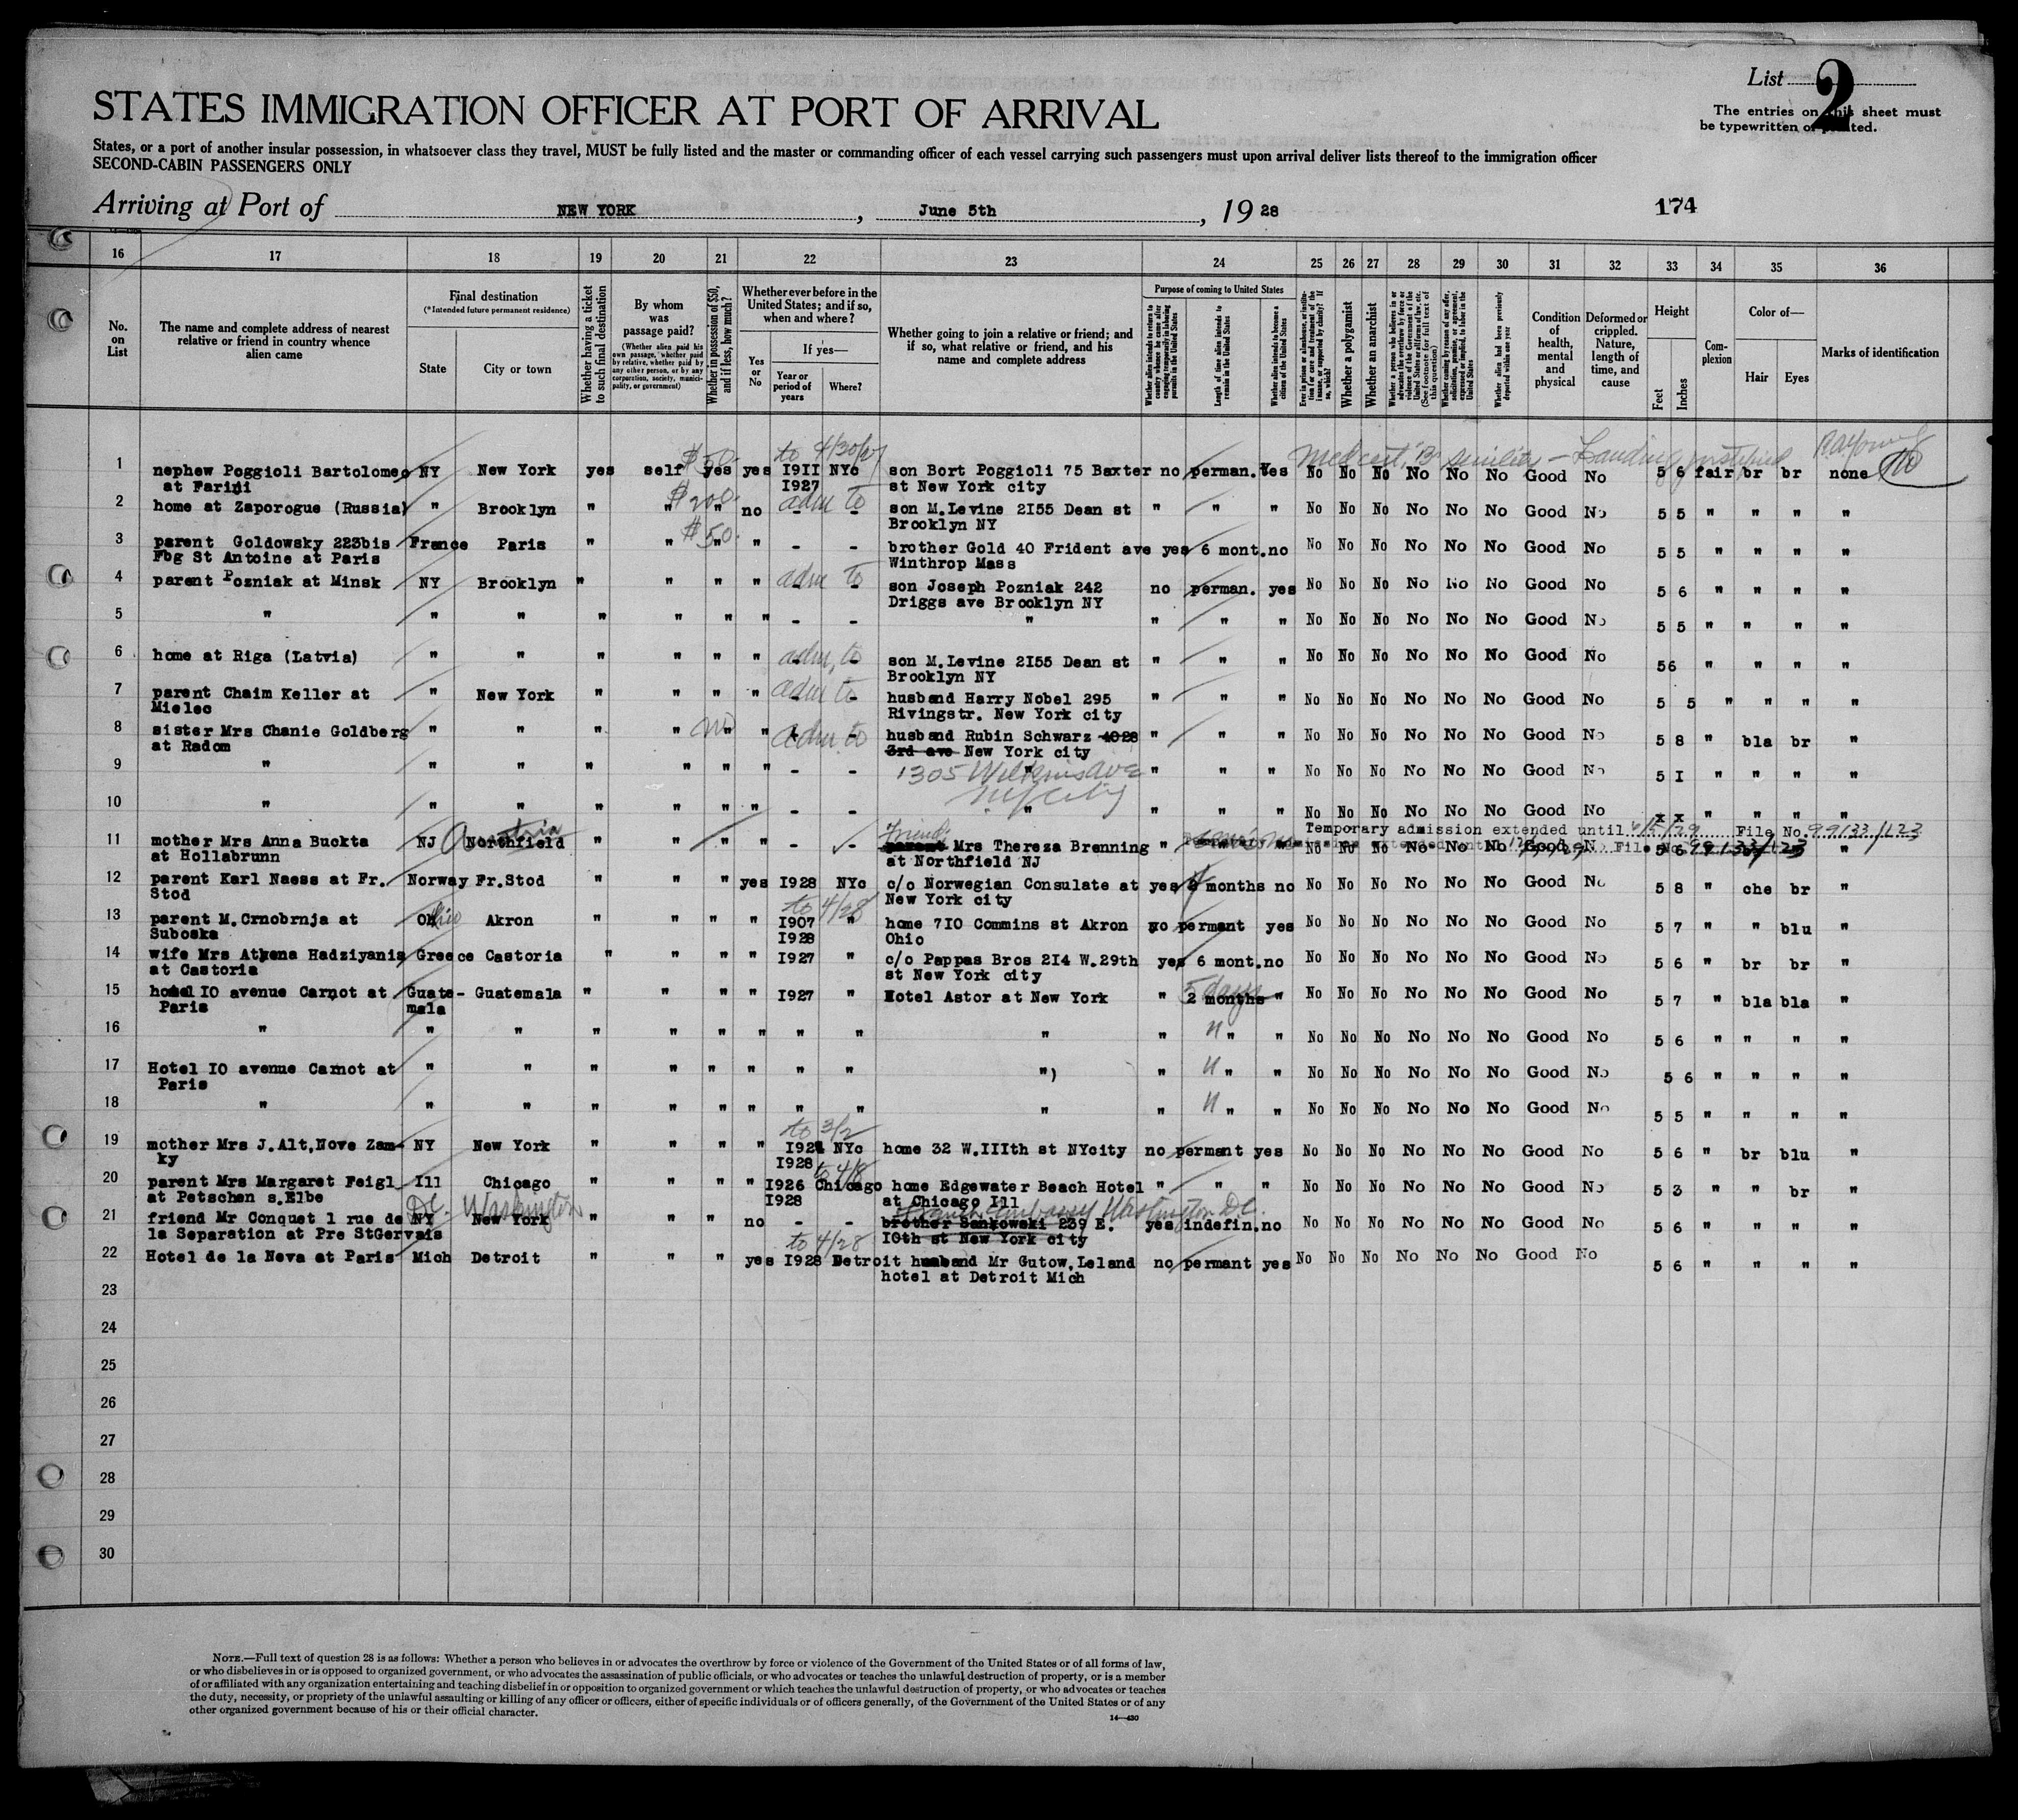 List 2
STATES IMMIGRATION OFFICER AT PORT OF ARRIVAL
The entries on this sheet must
be typewritten or printed.
States, or a port of another insular possession, in whatsoever class they travel, MUST be fully listed and the master or commanding officer of each vessel carrying such passengers must upon arrival deliver lists thereof to the immigration officer
SECOND-CABIN PASSENGERS ONLY
Arriving at Port of NEW YORK, June 5th, 1928
174
16 17 18 19 20 21 22 23 24 25 26 27 28 29 30 31 32 33 34 35 36
No. on List
The name and complete address of nearest relative or friend in country whence alien came
Final destination
(*Intended future permanent residence)
State
City or town
Whether having a ticket to such final destination
By whom was passage paid?
(Whether alien paid his own passage, whether paid by relative, whether paid by any other person, or by any corporation, society, municipality, or government)
Whether in possession of $50, and if less, how much?
Whether ever before in the United States; and if so, when and where?
Yes or No
If yes—
Year or period of years
Where?
Whether going to join a relative or friend; and if so, what relative or friend, and his name and complete address
Purpose of coming to United States
Whether alien intends to return to country whence he came after engaging temporarily in laboring pursuits in the United States
Length of time alien intends to remain in the United States
Whether alien intends to become a citizen of the United States
Ever in prison or almshouse or institution for care and treatment of the insane, or supported by charity? If so, which?
Whether a polygamist
Whether an anarchist
Whether a person who believes in or advocates the overthrow by force or violence of the Government of the United States or all forms of law, etc. (See footnote for full text of this question)
Whether coming by reason of any offer, solicitation, promise, or agreement, expressed or implied, to labor in the United States
Whether alien had been previously deported within one year
Condition of health, mental and physical
Deformed or crippled. Nature, length of time, and cause
Height
Feet
Inches
Complexion
Color of—
Hair
Eyes
Marks of identification
to 4/30/27
Med cert, B senility — Landing justified
1 nephew Poggioli Bartolomeo NY New York yes self $50. yes yes I9II NYc son Bort Poggioli 75 Baxter no perman. Yes No No No No No No Good No 5 6 fair br br none
at Farini I927 st New York city
2 home at Zaporogue (Russia) " Brooklyn " " $200. " no adm to - - son M.Levine 2I55 Dean st " " " No No No No No No Good No 5 5 " " " "
Brooklyn NY
3 parent Goldowsky 223bis France Paris " " $50. " " - - brother Gold 40 Frident ave yes 6 mont. no No No No No No No Good No 5 5 " " " "
Fbg St Antoine at Paris Winthrop Mass
4 parent Pozniak at Minsk NY Brooklyn " " " " adm to - son Joseph Pozniak 242 no perman. yes No No No No No No Good No 5 6 " " " "
Driggs ave Brooklyn NY
5 " " " " " " " - - " " " " No No No No No No Good No 5 5 " " " "
6 home at Riga (Latvia) " " " " " " adm, to - son M.Levine 2I55 Dean st " " " No No No No No No Good No 56 " " " "
Brooklyn NY
7 parent Chaim Keller at " New York " " " " adm to - husband Harry Nobel 295 " " " No No No No No No Good No 5 5 " " " "
Mielec Rivingstr. New York city
8 sister Mrs Chanie Goldberg " " " " no " " adm. to husband Rubin Schwarz 4028 " " " No No No No No No Good No 5 8 " bla br "
at Radom 3rd ave New York city
9 " " " " " " " - - 1305 Wilkins Ave " " " " No No No No No No Good No 5 I " " " "
NY City
10 " " " " " " " - - " " " " No No No No No No Good No x x " " " "
Temporary admission extended until 6/5/29 File No. 99133/123
11 mother Mrs Anna Buckta NJ Austria Northfield " " " " - - Friend: parent Mrs Thereza Brenning " No No No No No Good No 5 6 "
File No 99133/123
at Hollabrunn at Northfield NJ
12 parent Karl Naess at Fr. Norway Fr.Stod " " " yes I928 NYc c/o Norwegian Consulate at yes months no No No No No No No Good No 5 8 " che br "
Stod New York city
to 4/28
13 parent M.Crnobrnja at Ohio Akron " " " " I907 " home 7I0 Commins st Akron no permant yes No No No No No No Good No 5 7 " " blu "
Suboska I928 Ohio
14 wife Mrs Athena Hadziyanis Greece Castoria " " " " I927 " c/o Pappas Bros 2I4 W.29th yes 6 mont. no No No No No No No Good No 5 6 " br br "
at Castoria st New York city
15 hotel I0 avenue Carnot at Guate- Guatemala " " " " I927 " Hotel Astor at New York " 5 days 2 months " No No No No No No Good No 5 7 " bla bla "
Paris mala
16 " " " " " " " " " " " " " " No No No No No No Good No 5 6 " " " "
17 Hotel I0 avenue Carnot at " " " " " " " " ") " " " " No No No No No No Good No 5 6 " " " "
Paris
18 " " " " " " " " " " " " " " No No No No No No Good No 5 5 " " " "
to 3/2
19 mother Mrs J.Alt,Nove Zam- NY New York " " " " I924 NYc home 32 W.IIIth st NYcity no permant yes No No No No No No Good No 5 6 " br blu "
ky I928
to 4/8
20 parent Mrs Margaret Feigl Ill Chicago " " " " I926 Chicago home Edgewater Beach Hotel " " " No No No No No No Good No 5 3 " " br "
at Petschen s.Elbe I928 at Chicago Ill
D.C. Washington French Embassy Washington D.C.
21 friend Mr Conquet 1 rue de NY New York " " " no - - brother Sankowski 239 E. yes indefin. no No No No No No No Good No 5 6 " " " "
la Separation at Pre StGervais I0th st New York city
to 4/28
22 Hotel de la Neva at Paris Mich Detroit " " " yes I928 Detroit husband Mr Gutow,Leland no permant yes No No No No No No Good No 5 6 " " " "
hotel at Detroit Mich
23
24
25
26
27
28
29
30
NOTE.—Full text of question 28 is as follows: Whether a person who believes in or advocates the overthrow by force or violence of the Government of the United States or of all forms of law,
or who disbelieves in or is opposed to organized government, or who advocates the assassination of public officials, or who advocates or teaches the unlawful destruction of property, or is a member
of or affiliated with any organization entertaining and teaching disbelief in or opposition to organized government or which teaches the unlawful destruction of property, or who advocates or teaches
the duty, necessity, or propriety of the unlawful assaulting or killing of any officer or officers, either of specific individuals or of officers generally, of the Government of the United States or of any
other organized government because of his or their official character.
14—430